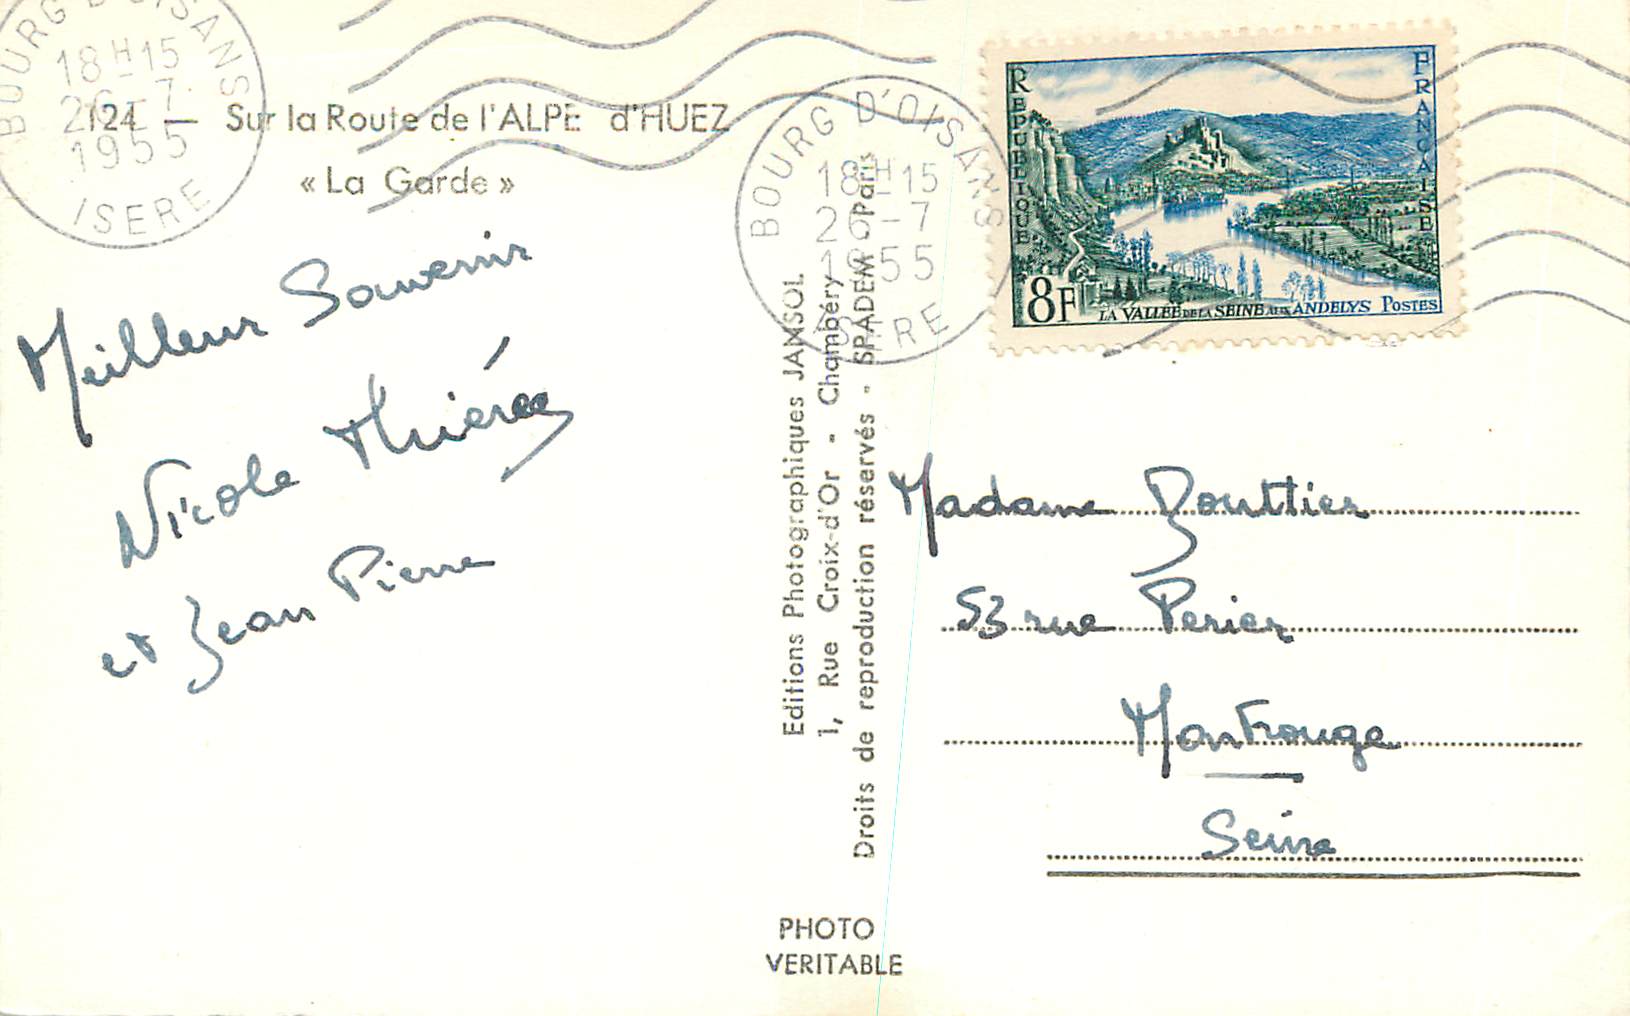 BOURG D'OISANS
18H15
26-7
1955
ISERE
124 — Sur la Route de l'ALPE d'HUEZ
« La Garde »
Meilleur Souvenir
Nicole Thierée
et Jean Pierre
Editions Photographiques JANSOL
1, Rue Croix-d'Or - Chambéry
Droits de reproduction réservés - SPADEM Paris
PHOTO
VERITABLE
BOURG D'OISANS
18H15
26-7
1955
ISERE
REPUBLIQUE
FRANÇAISE
8F
LA VALLÉE DE LA SEINE AUX ANDELYS POSTES
Madame Douttier
53 rue Perier
Montrouge
Seine